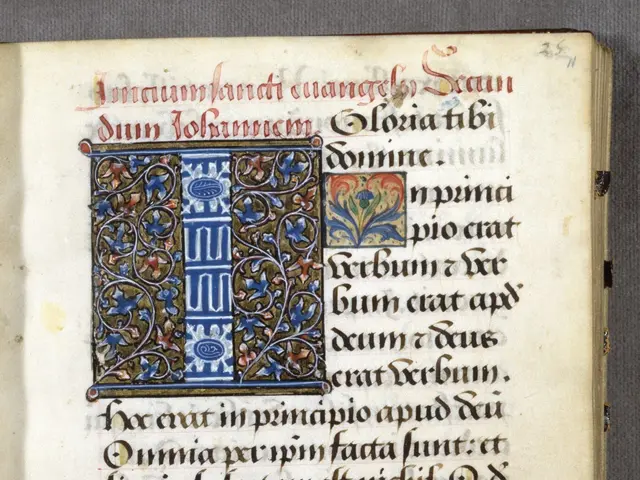 Inicium sancti euangelii Secun
dum Iohannem. Gloria tibi
domine.
In princi
pio erat
verbum ⁊ ver
bum erat apđ
deum ⁊ deus
erat verbum.
Hoc erat in principio apud deū
Omnia per ipm̄ facta sunt: et